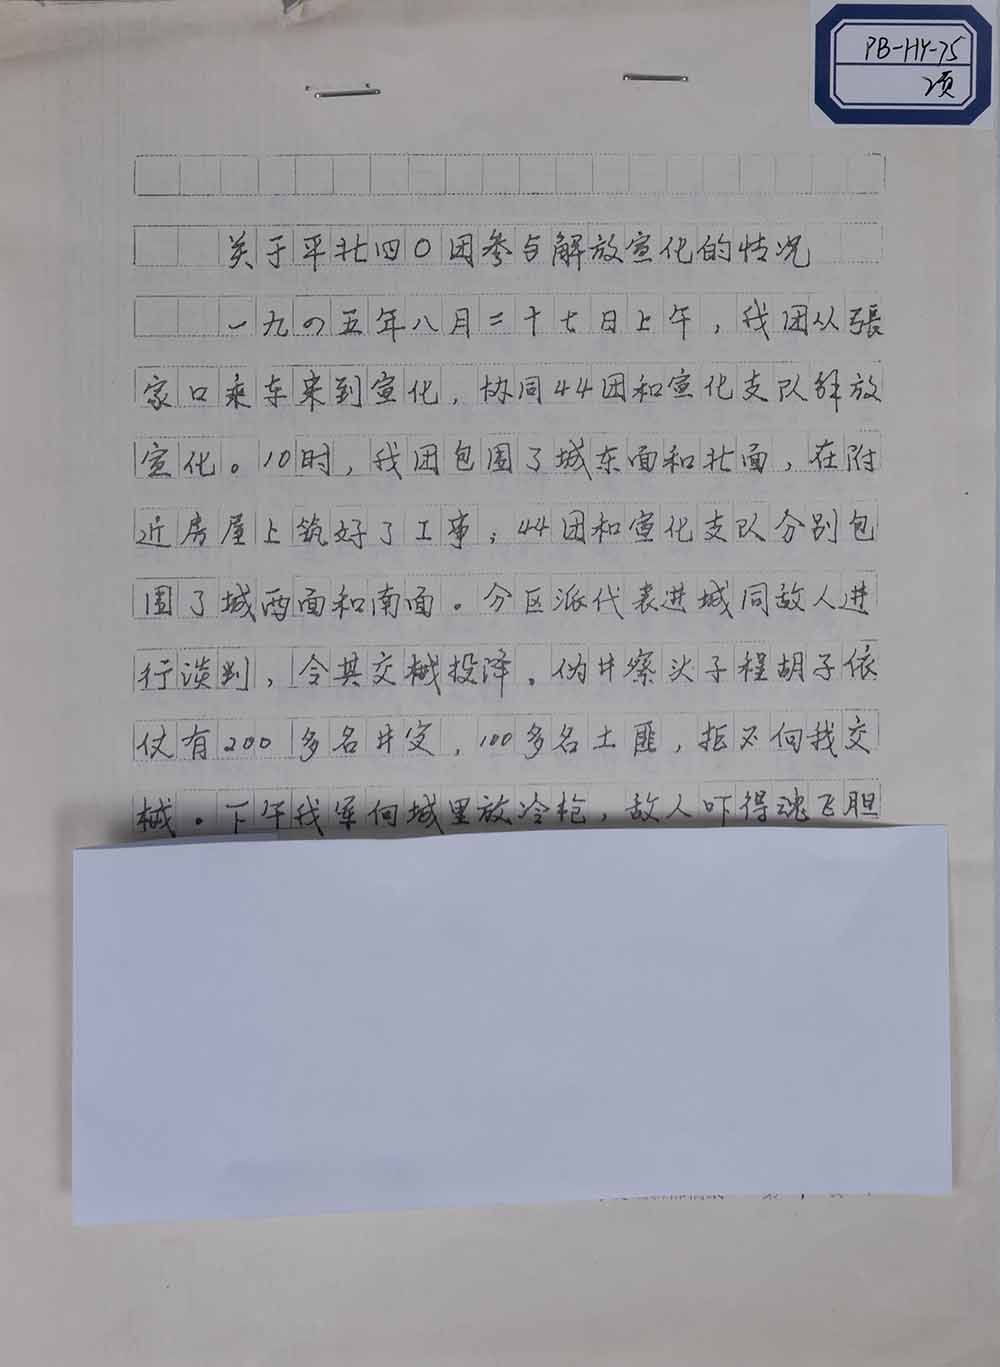 PB-HY-75
2页
关于平北四0团参与解放宣化的情况
一九四五年八月二十七日上午，我团从張
家口乘车来到宣化，协同44团和宣化支队解放
宣化。10时，我团包围了城东面和北面，在附
近房屋上筑好了工事；44团和宣化支队分别包
围了城西面和南面。分区派代表进城同敌人进
行谈判，令其交械投降。伪井察头子程胡子依
仗有200多名井察，100多名土匪，拒不向我交
械。下午我军向城里放冷枪，敌人吓得魂飞胆